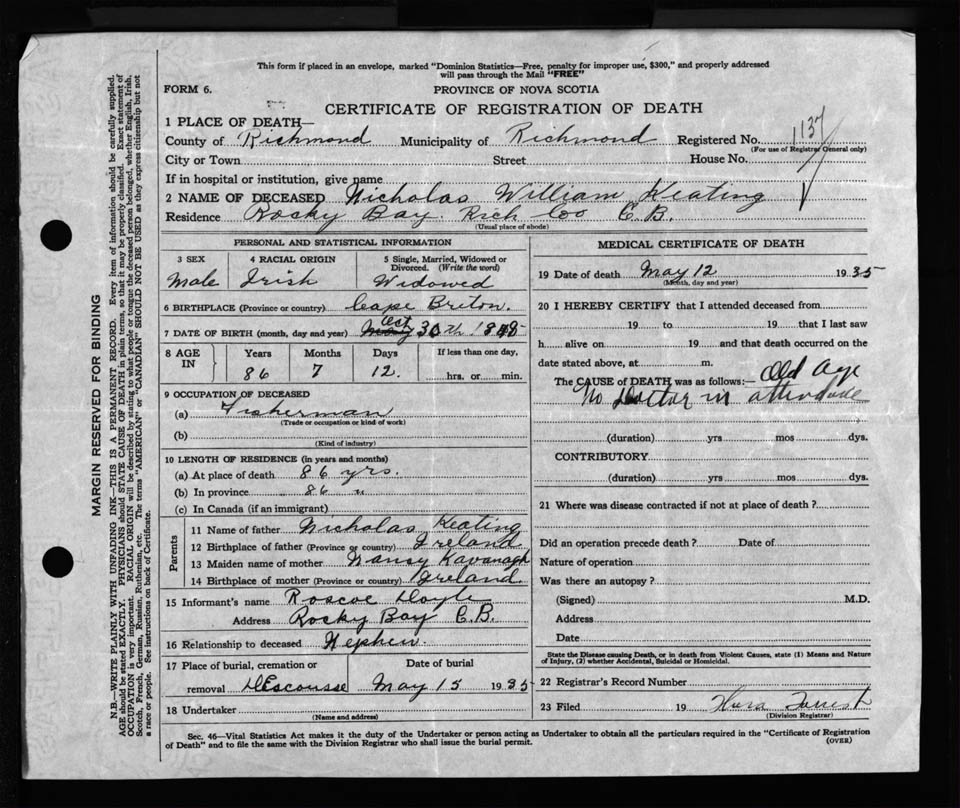 This form if placed in an envelope, marked "Dominion Statistics—Free, penalty for improper use, $300," and properly addressed
will pass through the Mail "FREE"
FORM 6.
PROVINCE OF NOVA SCOTIA
CERTIFICATE OF REGISTRATION OF DEATH
1 PLACE OF DEATH—
County of Richmond Municipality of Richmond Registered No. 1137
(For use of Registrar General only)
City or Town Street House No.
If in hospital or institution, give name
2 NAME OF DECEASED Nicholas William Keating
Residence Rocky Bay. Rich Coo C.B.
(Usual place of abode)
PERSONAL AND STATISTICAL INFORMATION
3 SEX 4 RACIAL ORIGIN 5 Single, Married, Widowed or
Divorced. (Write the word)
Male Irish Widowed
6 BIRTHPLACE (Province or country) Cape Briton.
7 DATE OF BIRTH (month, day and year) Oct 30th 1848
8 AGE IN Years Months Days If less than one day,
86 7 12. hrs. or min.
9 OCCUPATION OF DECEASED
(a) Fisherman
(Trade or occupation or kind of work)
(b)
(Kind of industry)
10 LENGTH OF RESIDENCE (in years and months)
(a) At place of death 86 yrs.
(b) In province 86 "
(c) In Canada (if an immigrant)
Parents
11 Name of father Nicholas Keating
12 Birthplace of father (Province or country) Ireland
13 Maiden name of mother Nancy Kavanagh
14 Birthplace of mother (Province or country) Ireland.
15 Informant's name Roscoe Doyle
Address Rocky Bay C.B.
16 Relationship to deceased Nephew.
17 Place of burial, cremation or Date of burial
removal DEscousse May 15 1935
18 Undertaker
(Name and address)
MEDICAL CERTIFICATE OF DEATH
19 Date of death May 12 1935
(Month, day and year)
20 I HEREBY CERTIFY that I attended deceased from
19 to 19 that I last saw
h alive on 19 and that death occurred on the
date stated above, at m.
The CAUSE OF DEATH was as follows:— Old Age
No Doctor in attendance
(duration) yrs mos dys.
CONTRIBUTORY
(duration) yrs mos dys.
21 Where was disease contracted if not at place of death?
Did an operation precede death? Date of
Nature of operation
Was there an autopsy?
(Signed) M.D.
Address
Date
State the Disease causing Death, or in death from Violent Causes, state (1) Means and Nature
of Injury, (2) whether Accidental, Suicidal or Homicidal.
22 Registrar's Record Number
23 Filed 19
(Division Registrar)
Sec. 46—Vital Statistics Act makes it the duty of the Undertaker or person acting as Undertaker to obtain all the particulars required in the "Certificate of Registration
of Death" and to file the same with the Division Registrar who shall issue the burial permit.
(OVER)
MARGIN RESERVED FOR BINDING
N.B.—WRITE PLAINLY WITH UNFADING INK—THIS IS A PERMANENT RECORD. Every item of information should be carefully supplied.
AGE should be stated EXACTLY. PHYSICIANS should STATE CAUSE OF DEATH in plain terms, so that it may be properly classified. Exact statement of
OCCUPATION is very important. RACIAL ORIGIN will be described by stating to what people or tongue the deceased person belonged, whether English, Irish,
Scotch, French, German, Russian, Ruthenian, etc. The terms "AMERICAN" or "CANADIAN" SHOULD NOT BE USED as they express citizenship but not
a race or people. See instructions on back of Certificate.